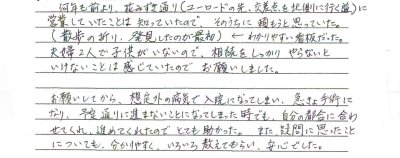 何年も前より、並木通り(ユーロードの先、交差点を北側に行く最)に
営業していたことは知っていたので、そちらに頼もうと思っていた。
(散歩の折り、発見したのが最初) ← わかりやすい看板だった。
夫婦2人で子供がいないので、相続をしっかりやらないと
いけないことは感じていたのでお願いしました。
お願いしてから、想定外の病気で入院になってしまい、急きょ手術に
なり、予定通りに進まないことになってしまった時でも、自分の都合に合わ
せてくれ、進めてくれたのでとても助かった。また、疑問に思ったこと
についても、分かりやすく、いろいろ教えてもらい、安心でした。